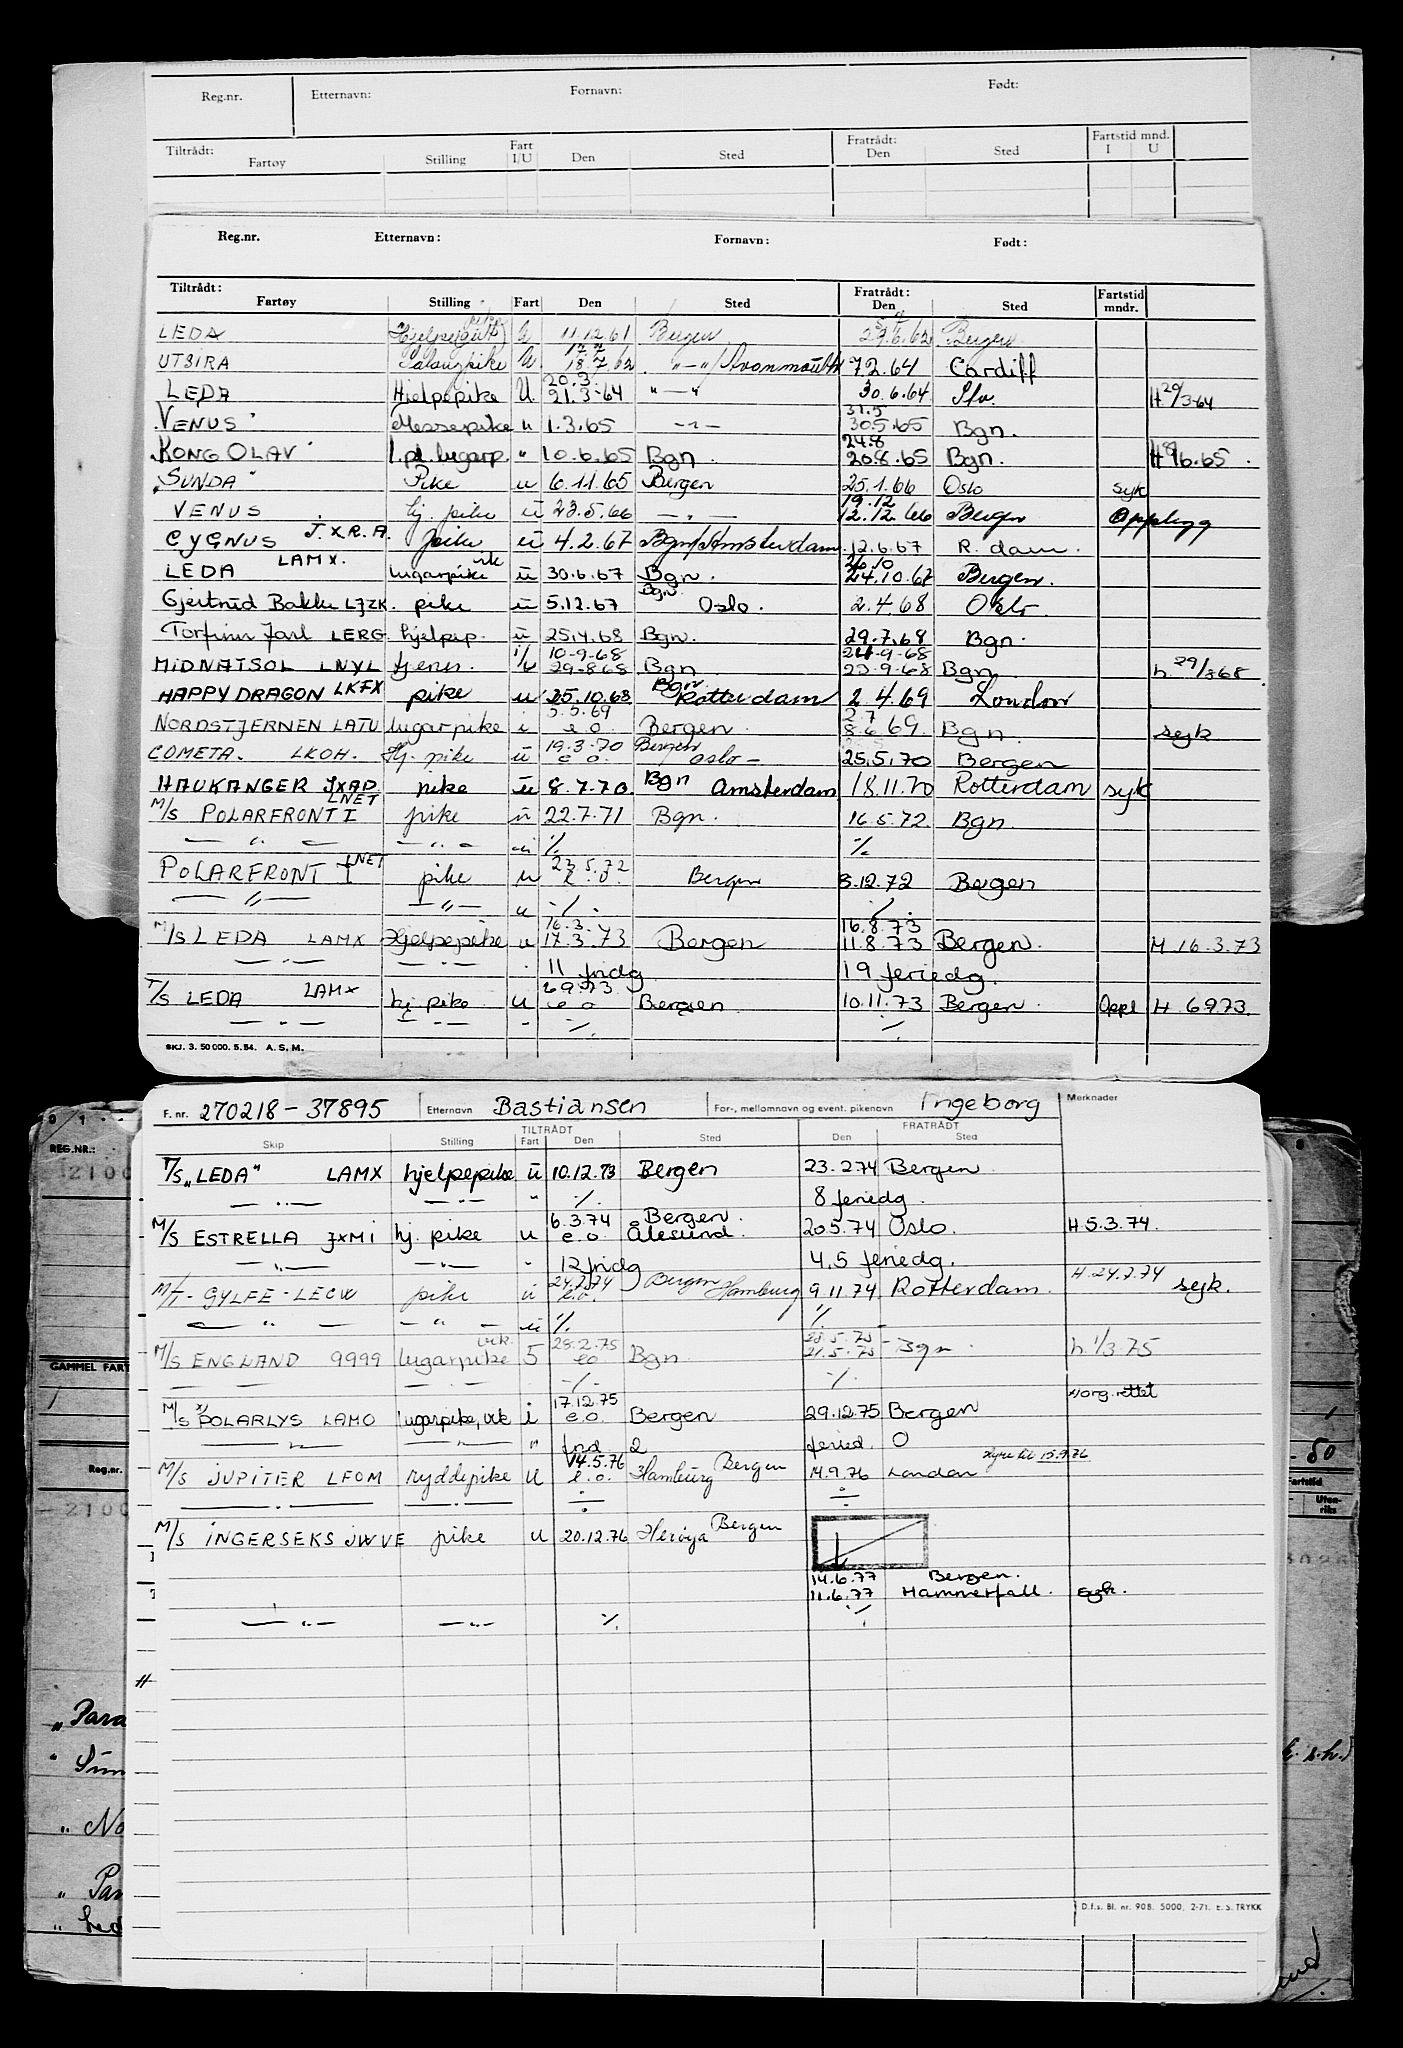 Reg.nr. Etternavn: Fornavn: Født:
Tiltrådt: Fartøy Stilling Fart I/U Den Sted Fratrådt: Den Sted Fartstid mnd. I U
Reg.nr. Etternavn: Fornavn: Født:
Tiltrådt: Fartøy Stilling Fart Den Sted Fratrådt: Den Sted Fartstid mndr.
LEDA Hjelpe U 11.12.61 Bergen Bergen
UTSIRA Salongpike U. 18.7.62 -"-/Avonmouth 7.2.64 Cardiff
20.3.
LEDA Hjelpepike U. 21.3-64 "-" 30.6.64 H 20/3-64
31.5
VENUS Messepike u 1.3.65 -"- 30.5.65 Bgn.
24.8
KONG OLAV 1.pl. lugarp. " 10.6.65 Bgn. 20.8.65 Bgn.
"SUNDA" Pike u 6.11.65 Bergen 25.1.66 Oslo syk
19.12
VENUS hj. pike u 23.5.66 -"- 12.12.66 Bergen Opplegg
CYGNUS J.X.R.A. pike u 4.2.67 Bgn/Amsterdam 12.6.67 R.dam.
26.10
LEDA LAMX. lugarpike vik u 30.6.67 Bgn. 24.10.67 Bergen.
Gjertrud Bakke LJZK. pike u 5.12.67 Bgn. Oslo. 2.4.68 Oslo
Torfinn Jarl LERG hjelpep. u 25.4.68 Bgn. 29.7.68 Bgn.
10-9-68 24-9-68
MIDNATSOL LNYL tjenes. i/u 29-8-68 Bgn 23-9-68 Bgn h. 29/868
HAPPY DRAGON LKFX pike u 25.10.68 Bgn. Rotterdam 2.4.69 London
5.5.69 2.7
NORDSTJERNEN LATU lugarpike i e.o. Bergen 8.6 69. Bgn. sejk
19.3.70 Bergen
COMETA. LKOH. Hj. pike u e.o. Oslo- 25.5.70 Bergen
HAUKANGER JXAD pike u 8.7.70. Bgn Amsterdam 18.11.70 Rotterdam syk
M/S POLARFRONT I LNET pike u 22.7.71 Bgn. 16.5.72 Bgn.
-"- -"- u ./. ./.
23.5.72
POLARFRONT I LNET pike u e.o. Bergen 8.12.72 Bergen
-"- -"- u ./. ./.
16.3. 16.8.73
M/S LEDA LAMX Hjelpepike u 17.3.73 Bergen 11.8.73 Bergen. H.16.3.73
-"- -"- " 11 fridg 19 feriedg.
6.9.73
T/S LEDA LAMX hj. pike u e.o Bergen 10.11.73 Bergen. Oppl H 6973.
-"- -"- " ./. ./.
SKJ. 3. 50 000. 5. 54. A. S. M.
F. nr. 270218-37895 Etternavn Bastiansen For-, mellomnavn og event. pikenavn Ingeborg Merknader
TILTRÅDT FRATRÅDT
Skip Stilling Fart Den Sted Den Sted
T/S "LEDA" LAMX hjelpepike u 10.12.73 Bergen 23.2.74 Bergen
-"- -"- " ./. 8 feriedg.
6.3.74 Bergen.
M/S ESTRELLA JXMI hj. pike u e.o. Ålesund. 20.5.74 Oslo. H 5.3.74.
-"- -"- " 12 fridg 4,5 feriedg.
24.7.74
M/T- GYLFE - LECW pike u e.o. Bergen Hamburg 9.11.74 Rotterdam. H.24.7.74 sejk.
-"- -"- u ./. ./.
28.2.75 23.5.75
M/S ENGLAND 9999 lugarpike vik. 5 eo Bgn 21.5.75 Bgn. h. 1/3.75
- - - - ./. ./.
17.12.75 Horg.rettet
M/S POLARLYS LAMO lugarpike, vik i e.o. Bergen 29.12.75 Bergen
-"- -"- " frid. 2 feried. 0
14.5.76 Hyre til 15.9.76
M/S JUPITER LFOM ryddepike U e.o. Hamburg Bergen 14.9.76 London
-"- -"- ÷ ÷
M/S INGERSEKS JWVE pike u 20.12.76 Herøya Bergen
14.6.77 Bergen.
11.6.77 Hammerfall. sejk.
-"- -"- ./. ./.
D.f.s. Bl. nr. 908. 5000, 2-71. E. S. TRYKK
REG.NR.:
GAMMEL FART
Reg.nr.
Fartstid
Uten-riks